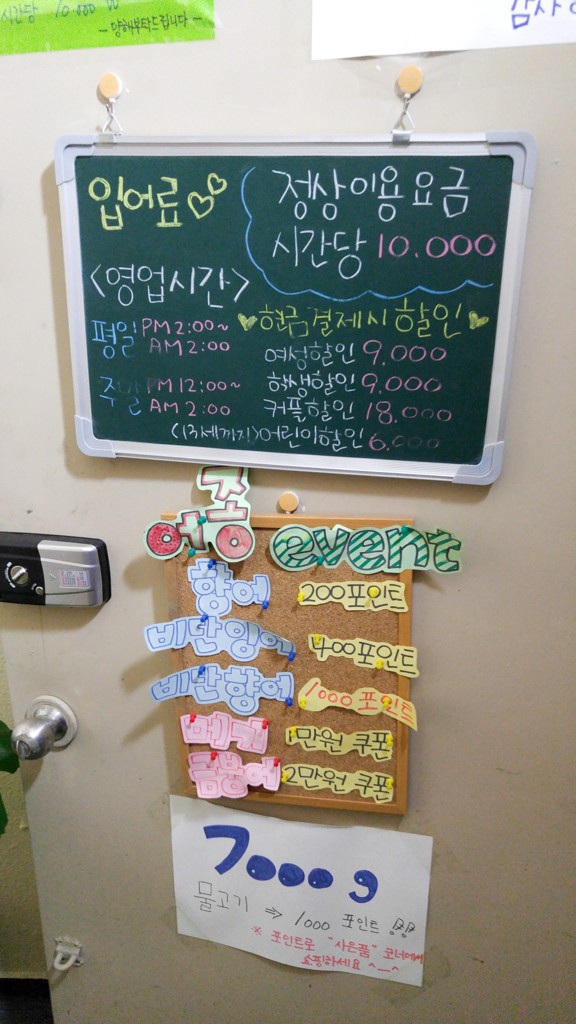 시간당 10.000
- 양해부탁드립니다 -
감사
입어료
정상이용요금
시간당 10.000
<영업시간>
평일 PM 2:00~
AM 2:00
주말 PM 12:00~
AM 2:00
현금결제시 할인
여성할인 9.000
학생할인 9.000
커플할인 18.000
<13세까지>어린이할인 6.000
어종 event
향어 200포인트
비단잉어 400포인트
비단향어 1000 포인트
메기 1만원 쿠폰
금붕어 2만원 쿠폰
7000 g
물고기 ⇒ 1000 포인트
※ 포인트로 "사은품" 코너에서
쇼핑하세요 ^__^